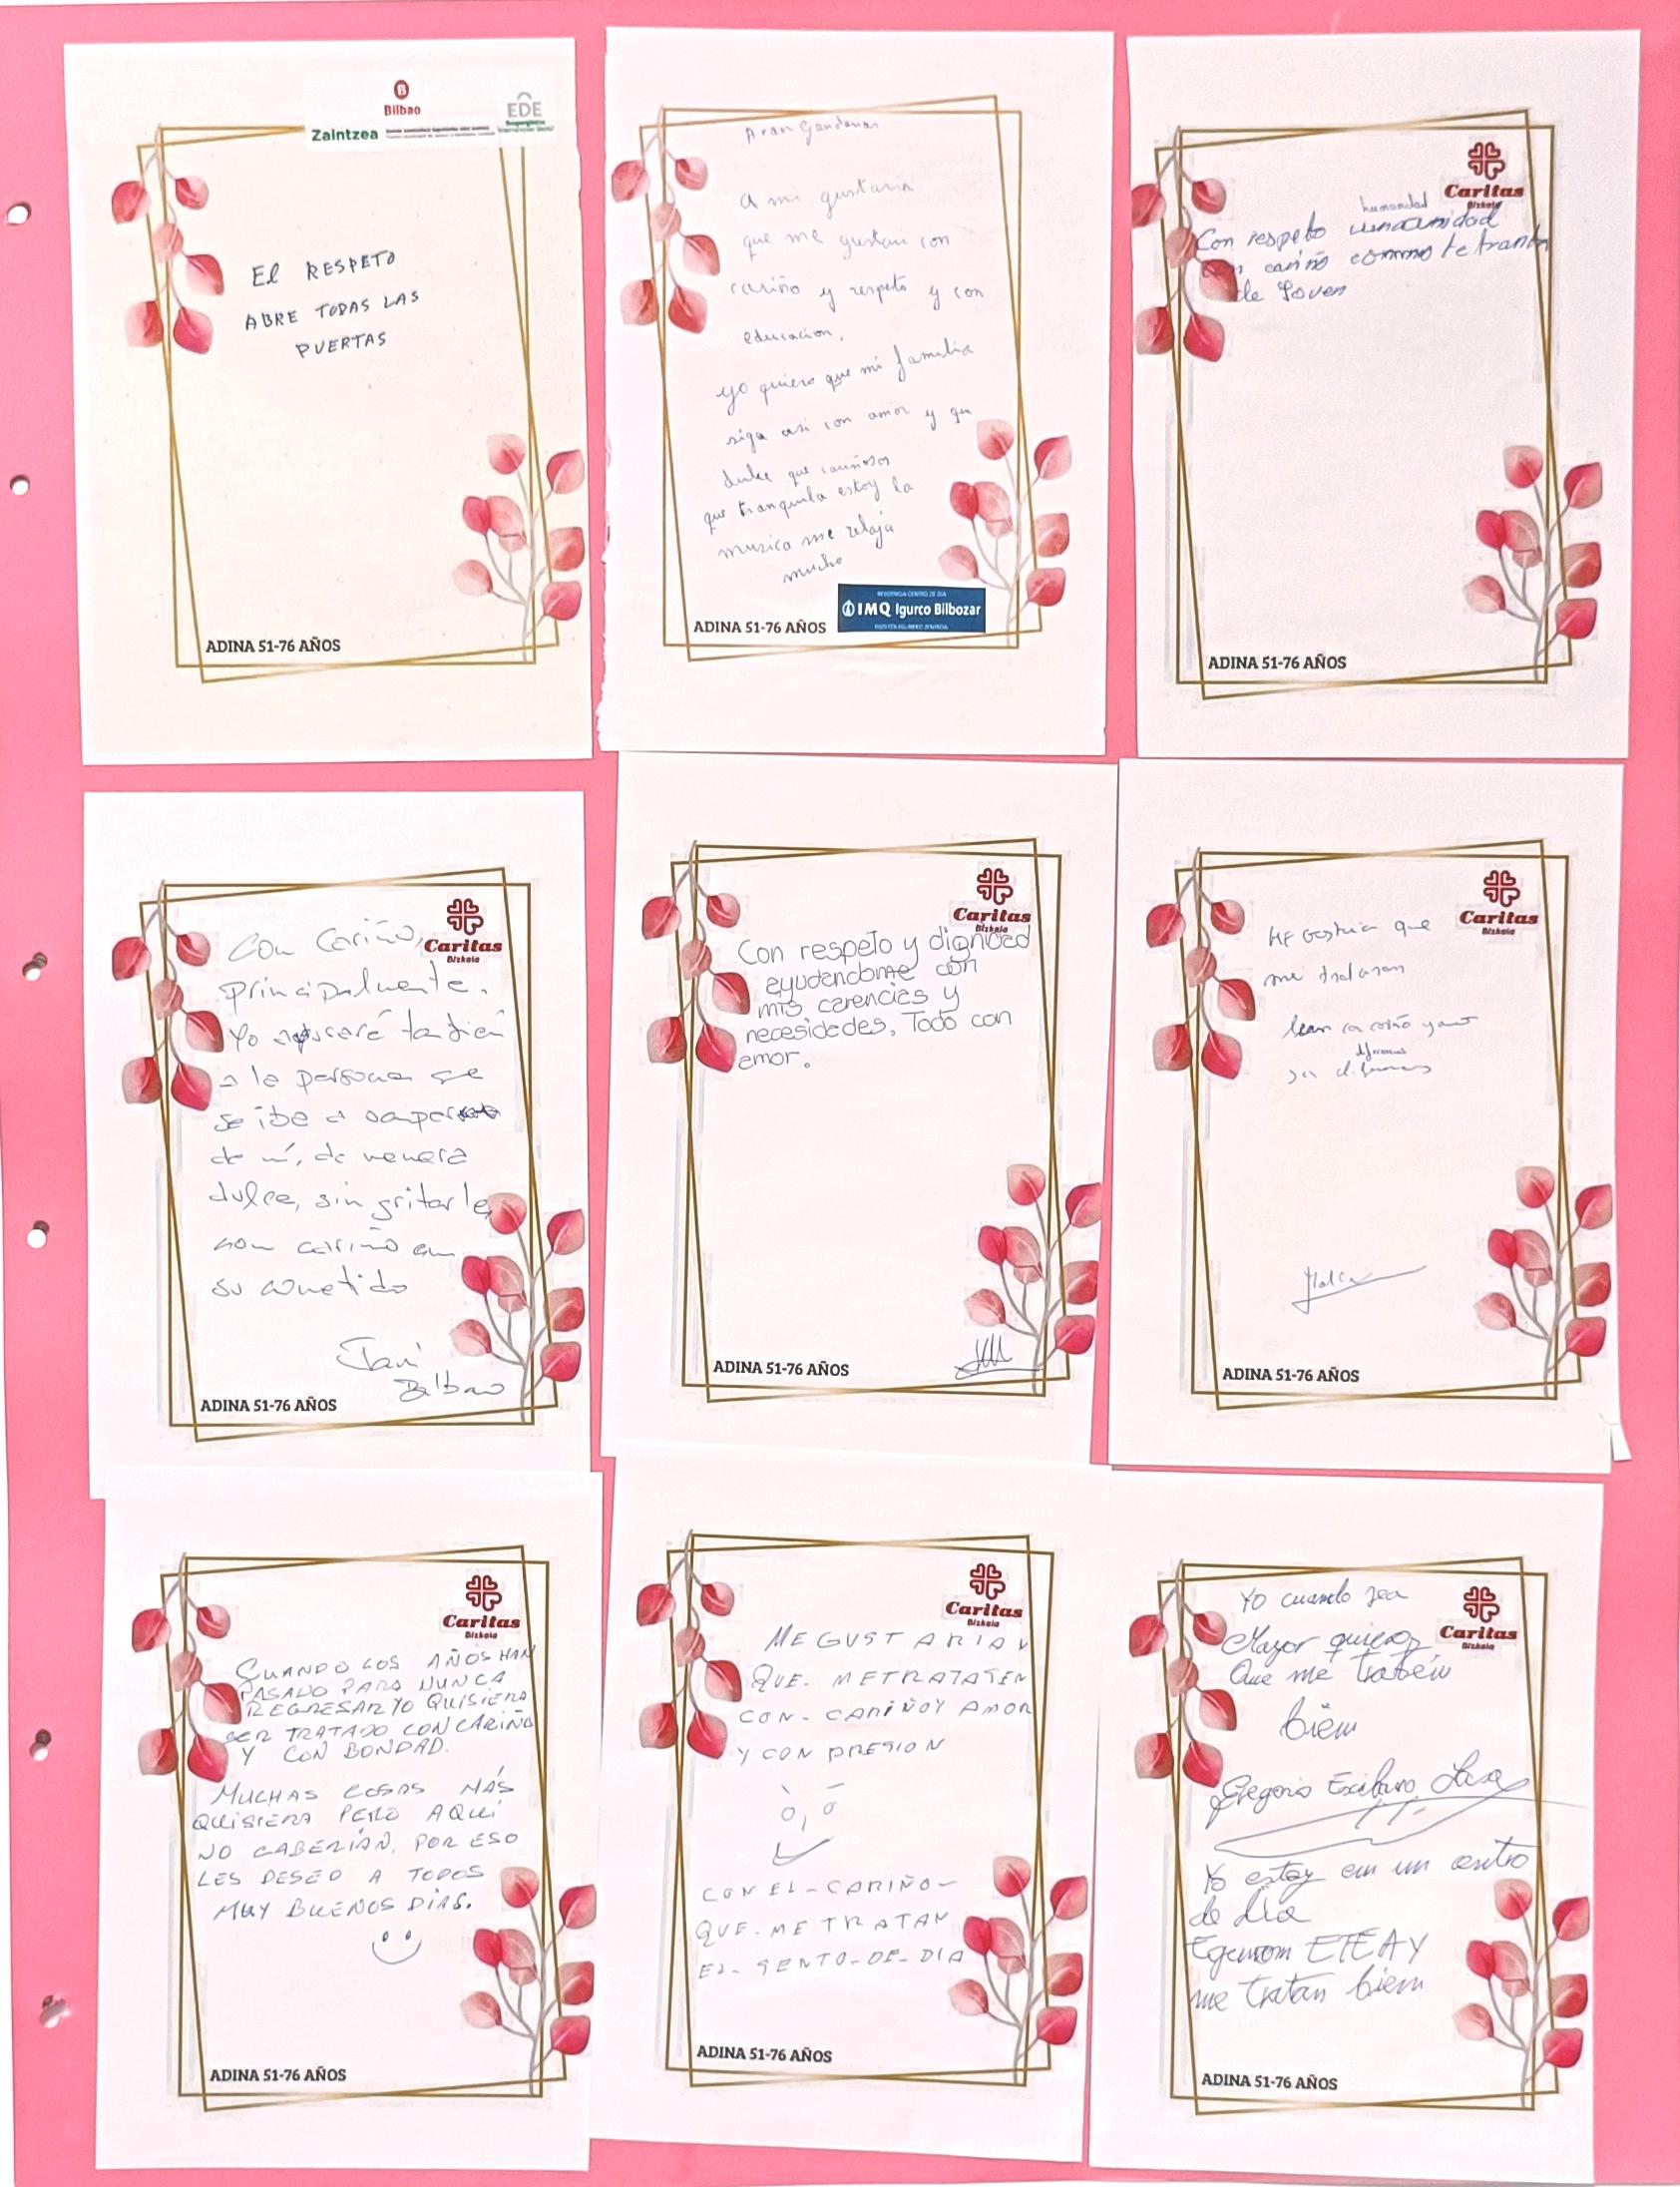 Bilbao
EDE
Zaintzea
El RESPETO
ABRE TODAS LAS
PUERTAS
ADINA 51-76 AÑOS
A mi gustaria
que me gustan con
cariño y respeto y con
educacion.
yo quiero que mi familia
siga asi con amor y que
dulce que cariñosos
que tranquila estoy la
musica me relaja
mucho
IMQ Igurco Bilbozar
ADINA 51-76 AÑOS
Caritas
Bizkaia
humanidad
Con respeto
con cariño commo te tratan
de Joven
ADINA 51-76 AÑOS
Caritas
Bizkaia
Con Cariño,
principalmente.
Yo también
a la persona que
se iba a
de mí, de manera
dulce, sin gritarle,
con cariño en
su cometido
Javi
Bilbao
ADINA 51-76 AÑOS
Caritas
Bizkaia
Con respeto y dignidad
ayudandome con
mis carencias y
necesidades. Todo con
amor.
ADINA 51-76 AÑOS
Caritas
Bizkaia
que
me trataran
ADINA 51-76 AÑOS
Caritas
Bizkaia
CUANDO LOS AÑOS HAN
PASADO PARA NUNCA
REGRESAR YO QUISIERA
SER TRATADO CON CARIÑO
Y CON BONDAD.
MUCHAS COSAS MÁS
QUISIERA PERO AQUÍ
NO CABERÍAN. POR ESO
LES DESEO A TODOS
MUY BUENOS DÍAS.
ADINA 51-76 AÑOS
Caritas
Bizkaia
ME GUSTARIA
QUE. METRATASEN
CON- CARIÑO Y AMOR
Y CON PRESION
CON EL-CARIÑO-
QUE-ME TRATAN
EL- SENTO-DE-DIA
ADINA 51-76 AÑOS
Caritas
Bizkaia
Yo cuando sea
Mayor quiero
Que me traten
bien
Gregorio
Yo estoy en un centro
de Dia
Egunon ETEA Y
me tratan bien
ADINA 51-76 AÑOS